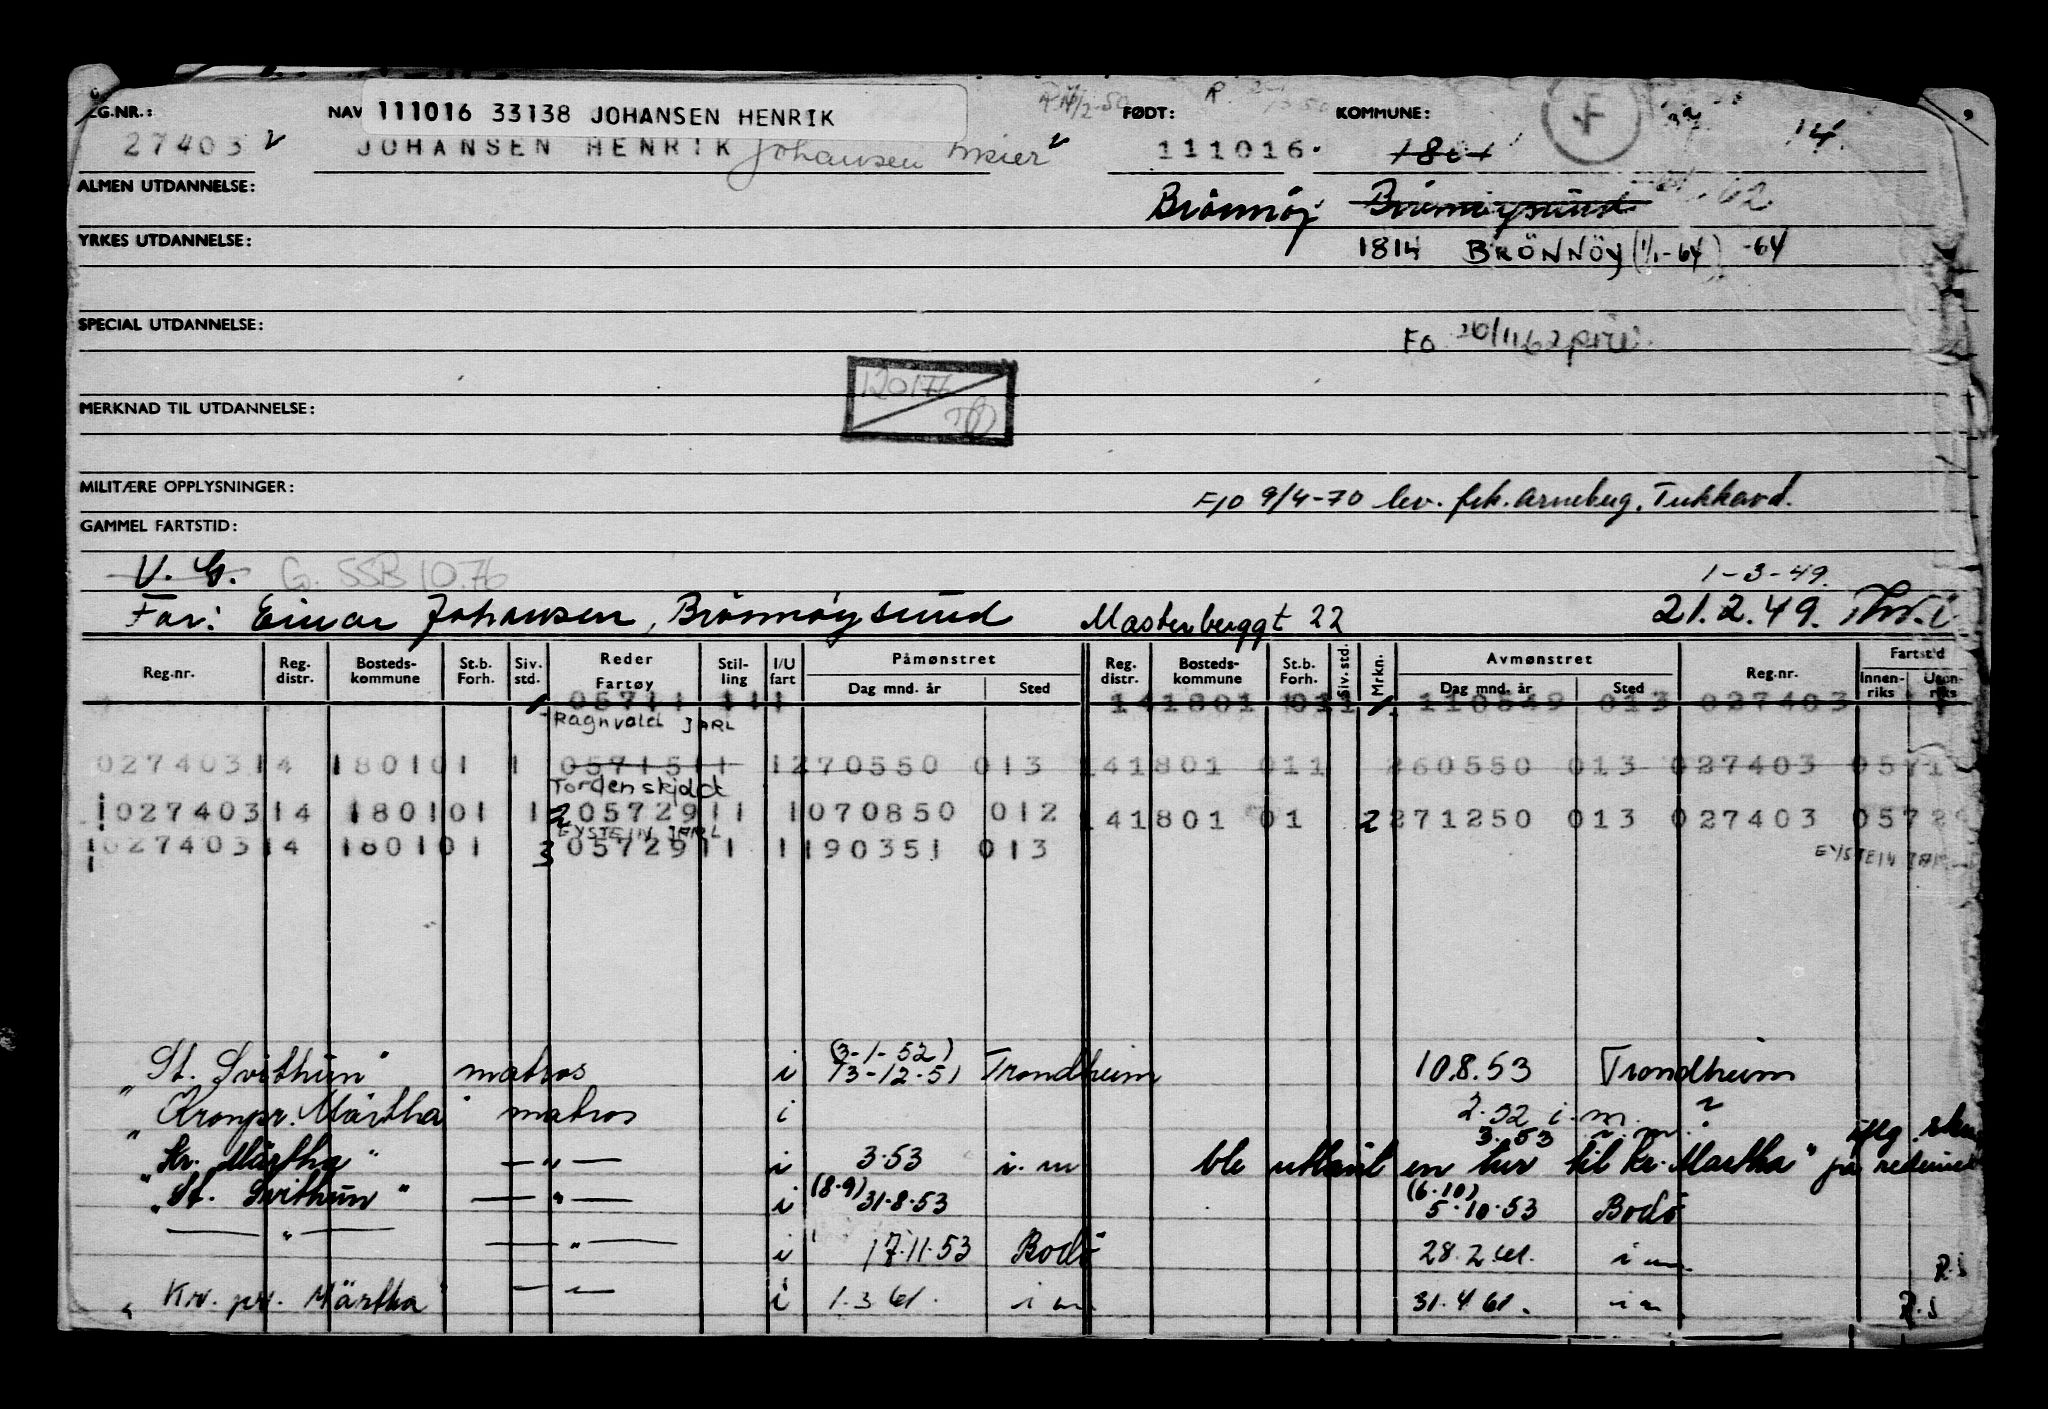 111016 33138 JOHANSEN HENRIK
REG.NR.: NAV FØDT: KOMMUNE: F 14.
27403 JOHANSEN HENRIK Johansen Meier 111016. 1801
ALMEN UTDANNELSE: Brönnöy Brönnöysund 62
YRKES UTDANNELSE: 1814 BRÖNNÖY (1/1-64) -64
SPECIAL UTDANNELSE: FO 20/11 62
120176
MERKNAD TIL UTDANNELSE:
MILITÆRE OPPLYSNINGER: F/O 9/4-70 lev. frk. Arneberg, Trekkavd.
GAMMEL FARTSTID:
V.G. G. SSB 10.76 1-3-49.
Far: Einar Johansen, Brönnöysund Masterberggt 22 21.2.49.
Reg.nr. Reg. distr. Bosteds-kommune St.b. Forh. Siv. std. Reder Fartøy Stil-ling I/U fart Påmønstret Dag mnd. år Sted Reg. distr. Bosteds-kommune St.b. Forh. Siv. std. Mrkn. Avmønstret Dag mnd. år Sted Reg.nr. Fartstid Innen-riks Uten-riks
05711 111 141801 011 1 110849 013 027403
Ragnvald JARL
027403 14 1801 01 1 05715 11 1 270550 013 141801 011 260550 013 027403 0571
Tordenskjold
1 027403 14 1801 01 1 2 05729 11 1 070850 012 141801 01 2 271250 013 027403 05729
EYSTEIN JARL
1 027403 14 1801 01 3 05729 11 1 190351 013 EYSTEIN JARL
(3-1-52)
"St. Svithun" matros i 13-12-51 Trondheim 10.8.53 Trondheim
"Kronpr. Märtha" matros i 2.52 i.m. "
3.53 i.m.
"Kr. Märtha" — " — i 3.53 i.m ble utlånt en tur til Kr. Märtha"
"St. Svithun" — " — i (8.9) 31.8.53 (6.10) 5.10.53 Bodö
— " — — " — i 17.11.53 Bodö 28.2.61. i m. R.S
"Kr. pr. Märtha" — " — i 1.3.61. i m. 31.4.61. i m R.S